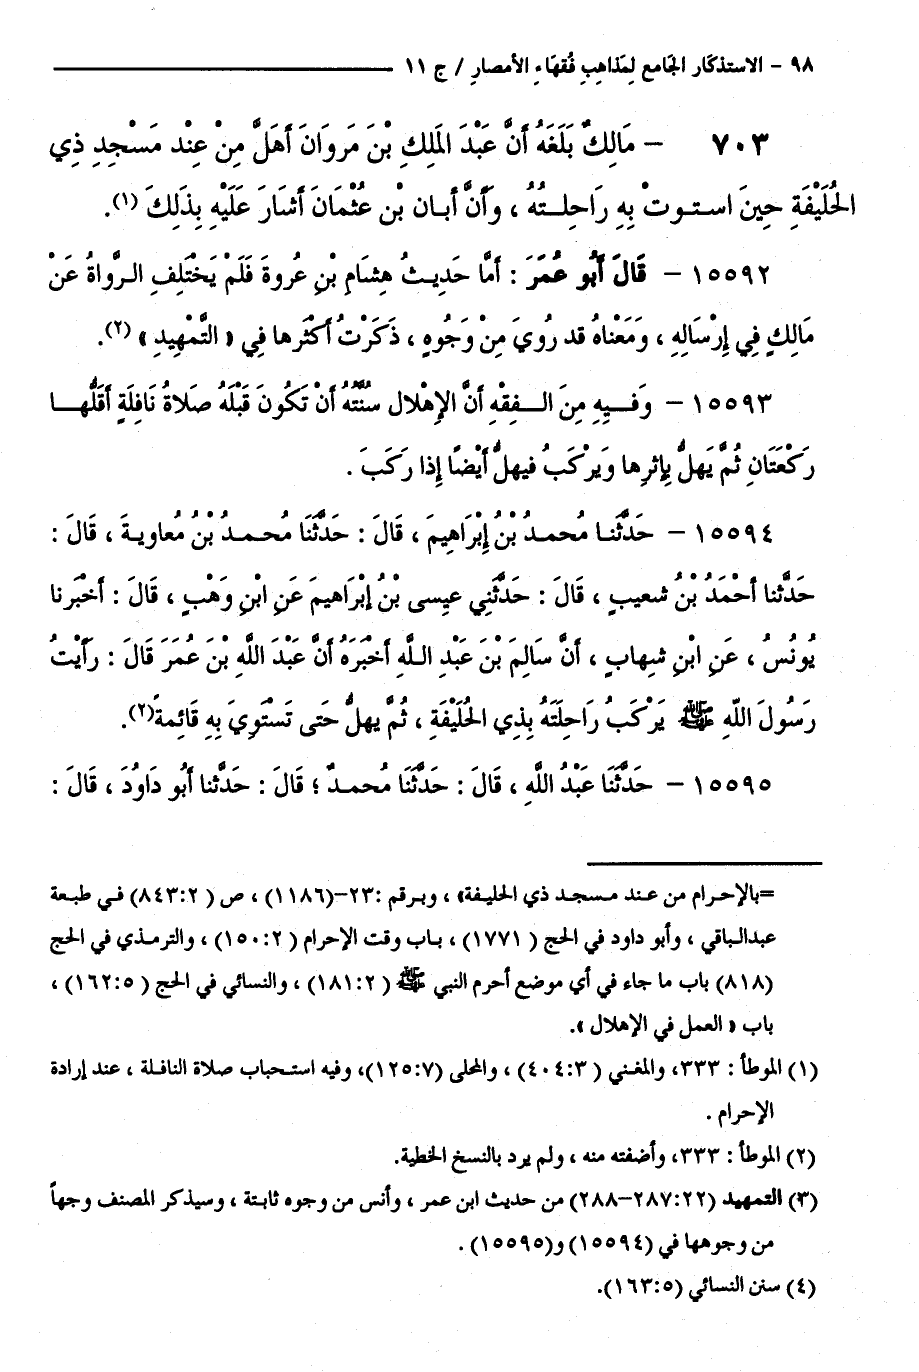 ٩٨ - الاستذكار الجامع لِمَذاهبِ فُقهَاءِ الأمصارِ / ج ١١
٧٠٣ – مَالِكٌ بَلَغَهُ أَنَّ عَبْدَ المَلِكِ بْنَ مَروَانَ أَهَلَّ مِنْ عِنْدِ مَسْجِدِ ذِي
الحُلَيْفَةِ حِينَ استوتْ بِهِ رَاحِلتُهُ ، وَأَنَّ أبان بْن عُثْمَانَ أشَارَ عَلَيْهِ بِذَلِكَ (١).
١٥٥٩٢ – قَالَ أَبُو عُمَرَ : أَمَّا حَدِيثُ هِشَامِ بْنِ عُروةَ فَلَمْ يَخْتَلِفِ الرَّواةُ عَنْ
مَالِكٍ فِي إِرْسَالِهِ ، وَمَعْنَاهُ قد رُوِيَ مِنْ وَجُوهٍ ، ذَكَرْتُ أكْثَرها فِي « التَّمْهِيدِ » (٢).
١٥٥٩٣ – وَفيهِ مِنَ الفِقْهِ أَنَّ الإِهْلال سُنَّتُهُ أنْ تَكُونَ قَبْلَهُ صَلاةُ نَافِلَةٍ أقَلُّها
رَكْعَتَانِ ثُمَّ يَهلُّ بِإثرِها وَيَرْكَبُ فيهلُّ أيْضًا إذا رَكَبَ .
١٥٥٩٤ – حَدَّثَنا مُحمدُ بْنُ إِبْرَاهِيمَ ، قَالَ : حَدَّثَنَا مُحمدُ بْنُ مُعاويةَ ، قَالَ :
حَدَّثنا أحْمَدُ بْنُ شعيبٍ ، قَالَ : حَدَّثَنِي عِيسى بْنُ إِبْرَاهيمَ عَنِ ابْنِ وَهْبٍ ، قَالَ : أخْبَرنا
يُونُسُ ، عَنِ ابْنِ شهابٍ ، أَنَّ سَالِمَ بْنَ عَبْدِ اللَّهِ أخْبَرَهُ أنَّ عَبْدَ اللهِ بْنَ عُمَرَ قَالَ : رَأيْتُ
رَسُولَ اللَّهِ ﷺ يَرْكَبُ رَاحِلَتَهُ بِذِي الحُلَيْفَةِ ، ثُمَّ يهلُّ حَتى تَسْتَوِيَ بِهِ قَائِمةً(٢).
١٥٥٩٥ – حَدَّثَنَا عَبْدُ اللَّهِ ، قَالَ : حَدَّثَنَا مُحمدٌ ؛ قَالَ : حَدَّثنا أَبُو دَاوُدَ ، قَالَ :
=بالإحرام من عند مسجد ذي الحليفة» ، وبرقم :٢٣–(١١٨٦) ، ص ( ٨٤٣:٢) في طبعة
عبدالباقي ، وأبو داود في الحج ( ١٧٧١) ، باب وقت الإحرام ( ١٥٠:٢) ، والترمذي في الحج
(٨١٨) باب ما جاء في أي موضع أحرم النبي ﷺ ( ١٨١:٢) ، والنسائي في الحج ( ١٦٢:٥) ،
باب « العمل في الإهلال ».
(١) الموطأ : ٣٣٣، والمغني ( ٤٠٤:٣) ، والمحلى (١٢٥:٧)، وفيه استحباب صلاة النافلة ، عند إرادة
الإحرام .
(٢) الموطأ : ٣٣٣، وأضفته منه ، ولم يرد بالنسخ الخطية.
(٣) التمهيد (٢٨٧:٢٢–٢٨٨) من حديث ابن عمر ، وأنس من وجوه ثابتة ، وسيذكر المصنف وجهاً
من وجوهها في (١٥٥٩٤) و(١٥٥٩٥) .
(٤) سنن النسائي (١٦٣:٥).